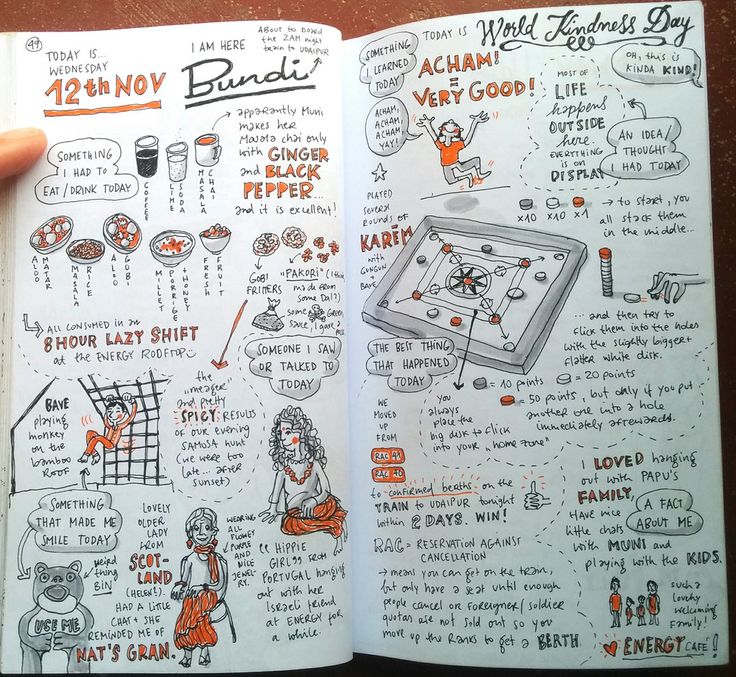 49
TODAY IS...
WEDNESDAY
12th NOV
I AM HERE
Bundi
ABOUT TO board
the 2AM night
train to UDAIPUR
SOMETHING
I HAD TO
EAT/DRINK TODAY
COFFEE
LIME SODA
MASALA CHAI
apparantly Muni
makes her
Masala chai only
with GINGER
and BLACK
PEPPER...
and it is excellent!
ALOO MATAR
MASALA RICE
ALOO GOBI
MILLET PORRIGE + HONEY
FRESH FRUIT
GOBI
FRITTERS
"PAKORI" (I think
made from
some Dal?)
some Green
sauce, I
ALL CONSUMED in an
8 HOUR LAZY SHIFT
at the ENERGY ROOFTOP
SOMEONE I SAW
OR TALKED TO
TODAY
BAVE
playing
monkey
on the
bamboo
ROOF
the
"meager"
and pretty
SPICY results
of our evening
SAMOSA hunt
(we were too
late... after
sunset)
SOMETHING
THAT MADE ME
SMILE TODAY
weird
thing
BIN
USE ME
LOVELY
OLDER
LADY
FROM
SCOT-
LAND
(HELEN!).
HAD A little
CHAT + SHE
REMINDED ME OF
NAT'S GRAN.
WEARING
ALL
FLOWEY
PURPLE
AND
NICE
JEWEL
RY.
"HIPPIE
GIRL" FROM
PORTUGAL hanging
out with her
Israeli friend
at ENERGY for
a while.
TODAY IS World Kindness Day
OH, this is
KINDA KIND!
SOMETHING
I LEARNED
TODAY
ACHAM!
=
VERY GOOD!
ACHAM,
ACHAM,
ACHAM,
YAY!
MOST OF
LIFE
happens
OUTSIDE
here.
EVERYTHING
is on
DISPLAY
AN IDEA/
THOUGHT
I HAD TODAY
PLAYED
several
rounds of
KARÉM
with
GUNGUN
+ BAVE
x10 x10 x1
→ to start, you
all stack them
in the middle...
... and then try to
flick them into the holes
with the slightly bigger +
flatter white disk.
THE BEST THING
THAT HAPPENED
TODAY
= 10 points = 20 points
= 50 points, but only if you put
another one into a hole
immediately afterwards.
you
always
place the
big disk + flick
into your "home zone"
WE
MOVED
UP
FROM
RAC 41
RAC 40
to confirmed beaths on the
TRAIN to UDAIPUR tonight
within 2 DAYS. WIN!
RAC = RESERVATION AGAINST
CANCELLATION
→ means you can get on the train,
but only have a seat until enough
people cancel or foreigner/soldier
quotas are not sold out so you
move up the Ranks to get a BERTH
I LOVED hanging
out with PAPU'S
FAMILY,
HAVE nice
little chats
with MUNI and
playing with the KIDS.
A FACT
ABOUT ME
such a
lovely
welcoming
family!
ENERGY CAFÉ!